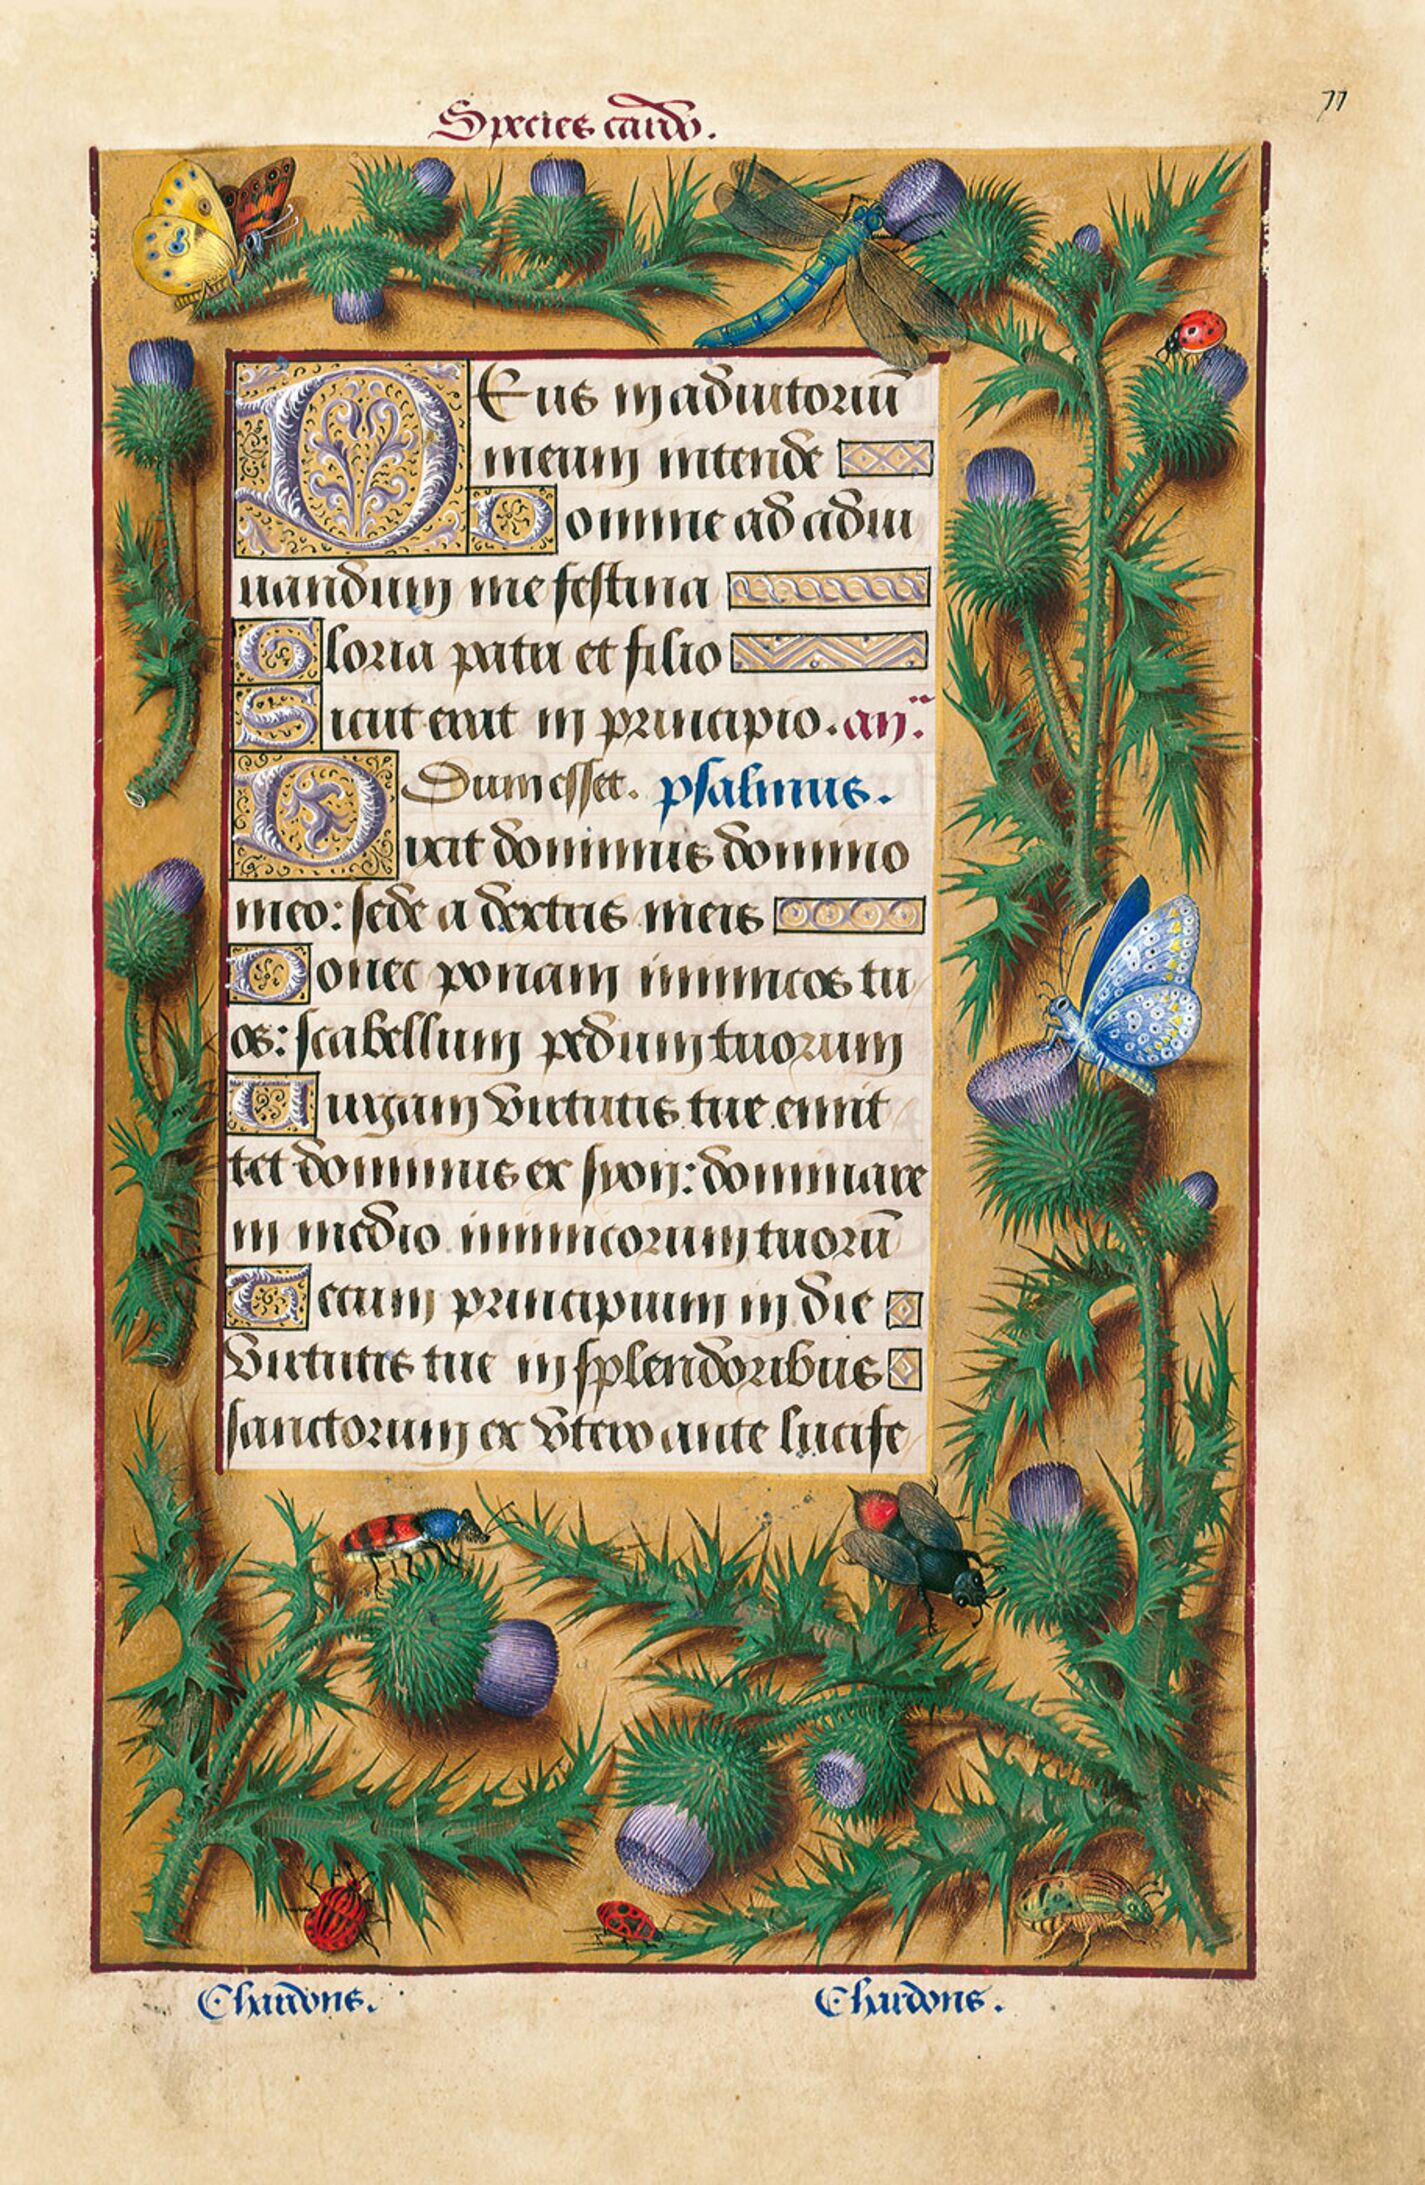 Species cardo.
77
DEus in adiutoriū
meum intende
Domine ad adiu
uandum me festina
Gloria patri et filio
Sicut erat in principio. an͂.
Dum esset. psalmus.
Dixit dominus domino
meo: sede a dextris meis
Donec ponam inimicos tu
os: scabellum pedum tuorum
Uirgam virtutis tue emit
tet dominus ex syon: dominare
in medio inimicorum tuorū
Tecum principium in die
virtutis tue in splendoribus
sanctorum ex vtero ante lucife
Chardons. Chardons.